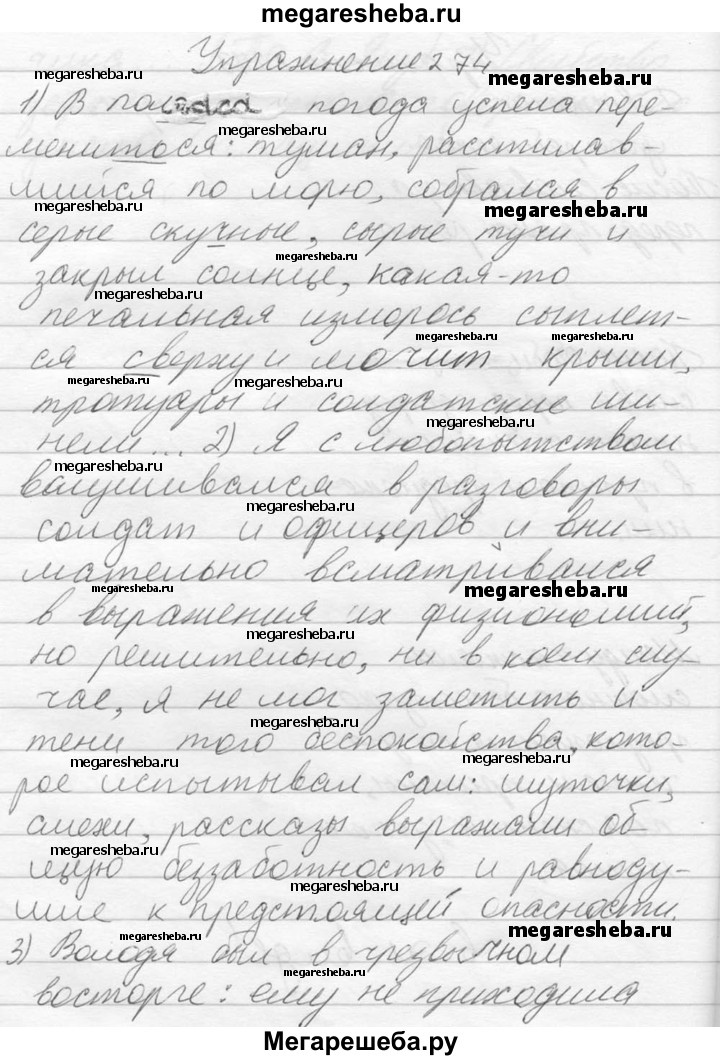 megaresheba.ru
Упражнение 274
1) В полчаса погода успела пере-
мениться: туман, расстилав-
шийся по морю, собрался в
серые скучные, сырые тучи и
закрыл солнце, какая-то
печальная изморось сыплет-
ся сверху и мочит крыши,
тротуары и солдатские ши-
нели... 2) Я с любопытством
вслушивался в разговоры
солдат и офицеров и вни-
мательно всматривался
в выражения их физиономий,
но решительно, ни в коем слу-
чае, я не мог заметить и
тени того беспокойства, кото-
рое испытывал сам: шуточки,
смехи, рассказы выражали об
щую беззаботность и равноду-
шие к предстоящей опасности.
3) Володя был в чрезвычном
восторге: ему не приходила
Мегарешеба.ру